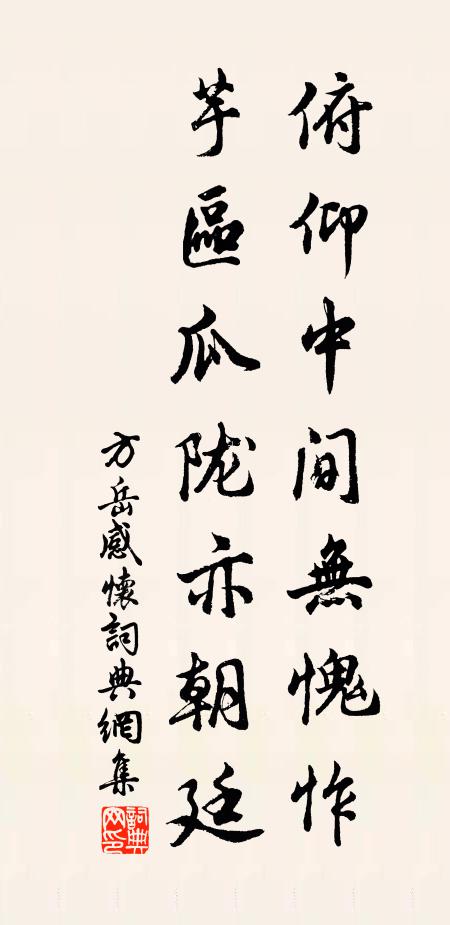 俯仰中间無愧怍
芋區瓜陇亦朝廷
方岳感懷詞典網集
詞典網印